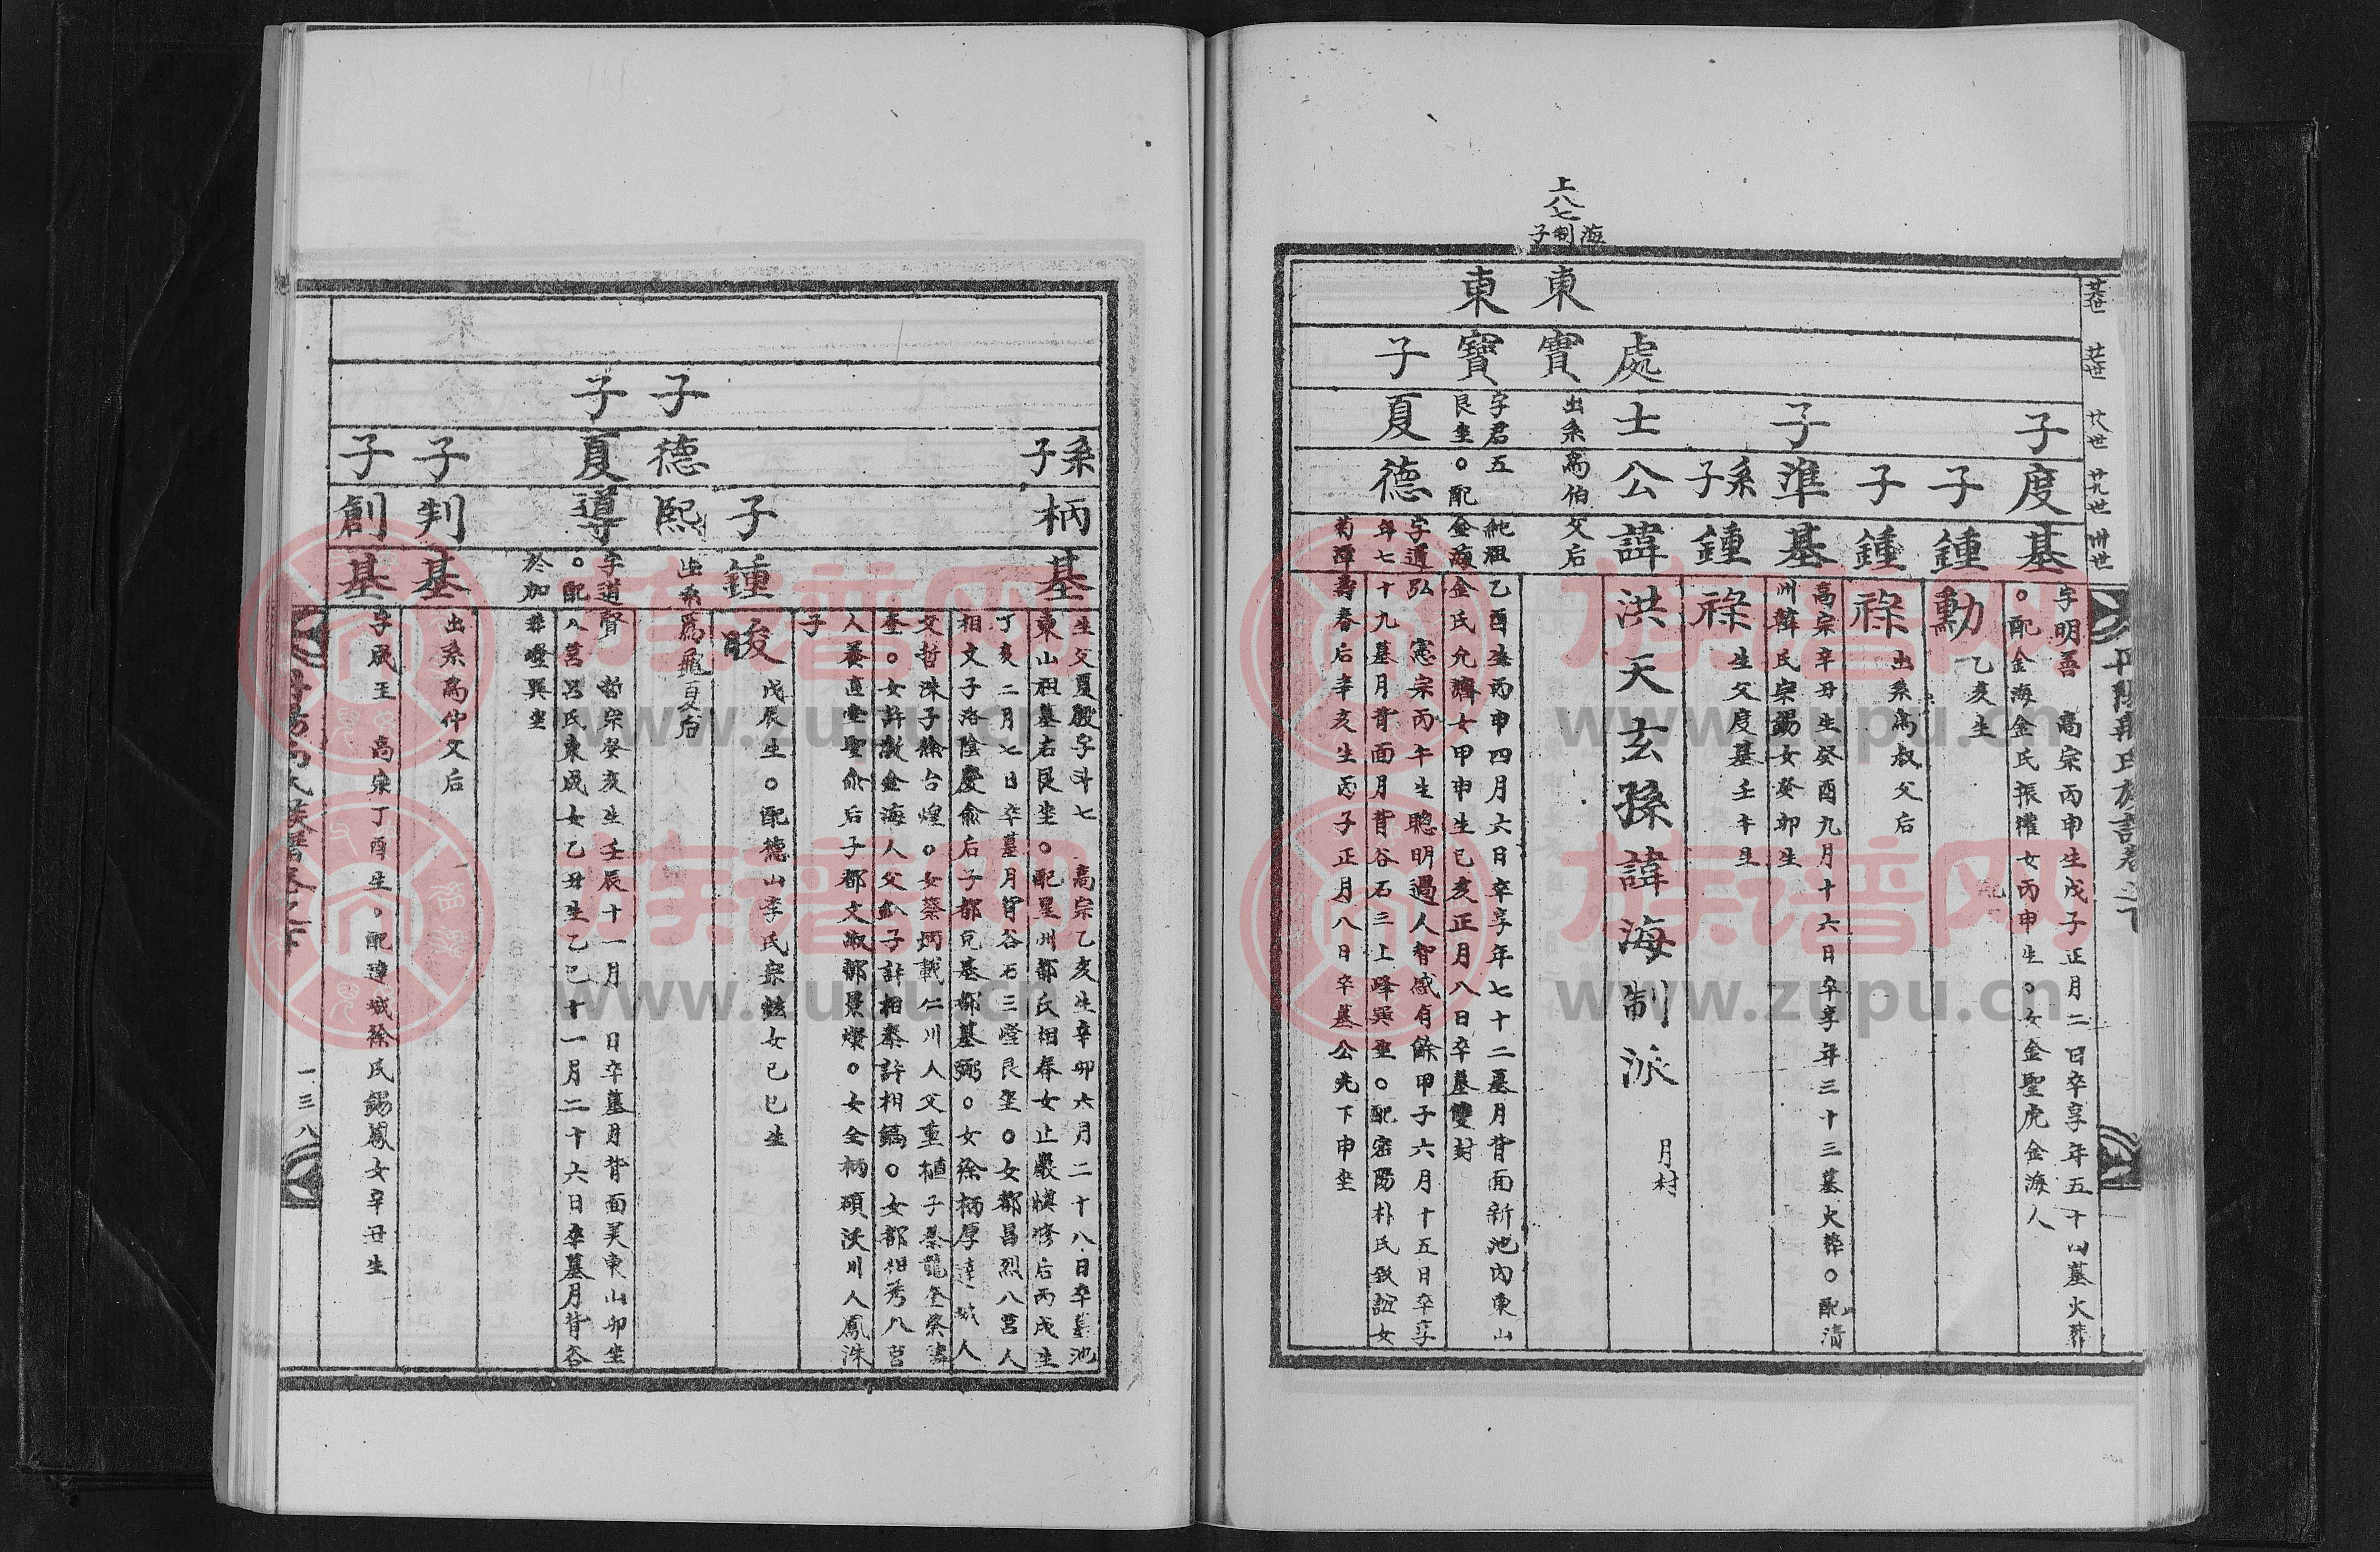 上八七
海制子
卄六世
卄七世
卄八世
卄九世
卅世
子度基
字明善 高宗丙申生戊子正月二日卒享年五十四墓火葬
○配金海金氏振權女丙申生○女金聖虎金海人
子鍾勳
乙亥生
子鍾祿
出系爲叔父后
子準基
高宗辛丑生癸酉九月十六日卒享年三十三墓火葬○配清
州韓氏宗錫女癸卯生
系子鍾祿
生父度基壬午生
處士公諱洪天玄孫諱海制派
月村
東實
出系爲伯父后
東寶
字君五 純祖乙酉生丙申四月六日卒享年七十二墓月背面新池內東山
艮坐○配金海金氏允濟女甲申生己亥正月八日卒墓雙封
子夏德
字道弘 憲宗丙午生聰明過人智慮有餘甲子六月十五日卒享
年七十九墓月背面月背谷石三上峰巽坐○配密陽朴氏致誼女
菊潭壽春后辛亥生丙子正月八日卒墓公兆下申坐
系子柄基
生父夏殷字斗七 高宗乙亥生辛卯六月二十八日卒墓池
東山祖墓右艮坐○配星州都氏相春女止巖愼修后丙戌生
丁亥二月七日卒墓月背谷石三嶝艮坐○女都昌烈八莒人
相文子洛陰慶兪后子都克基都基弼○女徐柄厚達城人
父哲洙子徐台煌○女蔡炳載仁川人父重植子蔡龍奎蔡濤
奎○女許澈金海人父 子許相泰許相鎬○女都相秀八莒
人養直堂聖兪后子都文淑都景燦○女全柄碩沃川人鳳洙
子
子鍾晙
戊辰生○配德山李氏宗鉉女己巳生
子德熙
出系爲龜夏后
子夏導
字道賢 哲宗癸亥生壬辰十一月 日卒墓月背面美東山卯坐
○配八莒呂氏東成女乙丑生乙巳十一月二十六日卒墓月背谷
於加 嶝巽坐
子判基
出系爲仲父后
子創基
字成玉 高宗丁酉生○配達城徐氏錫鳳女辛丑生
一三八
族谱网
www.zupu.cn
族谱网
www.zupu.cn
族谱网
www.zupu.cn
族谱网
www.zupu.cn